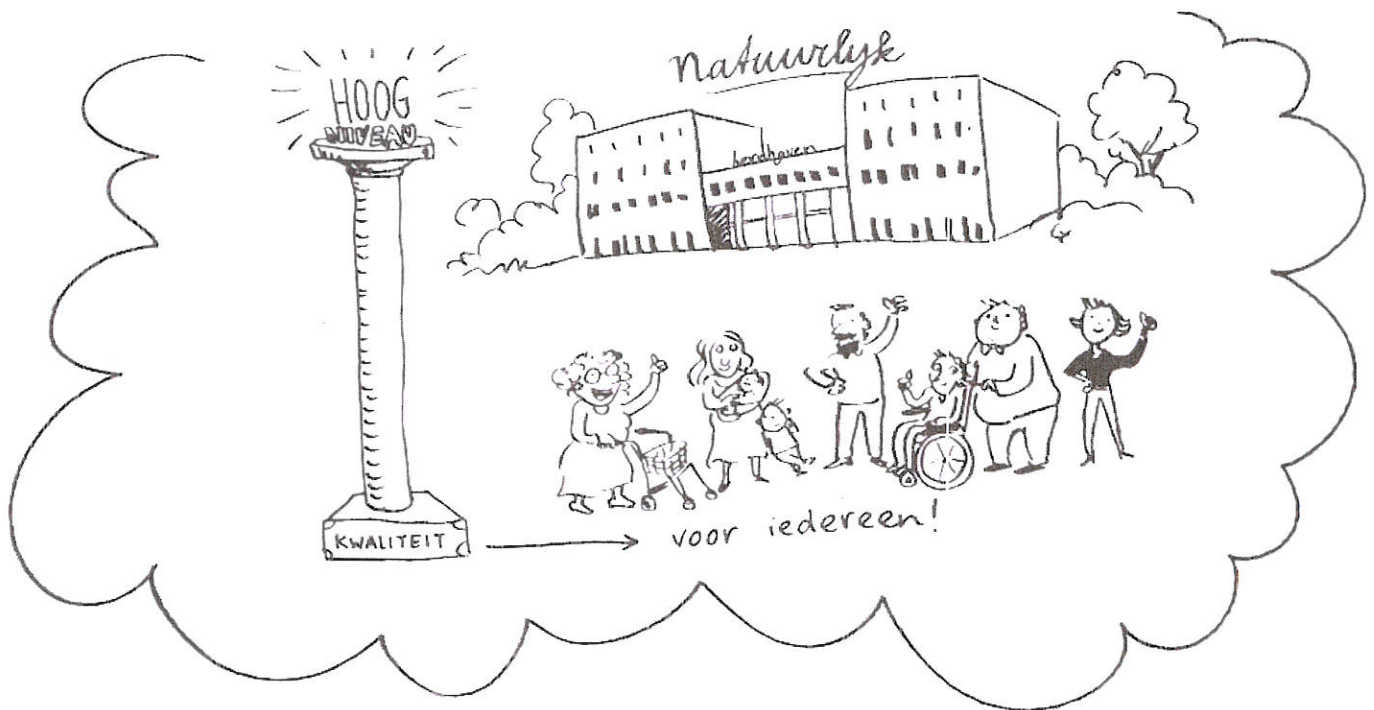 HOOG
NIVEAU
Natuurlyk
KWALITEIT
voor iedereen!